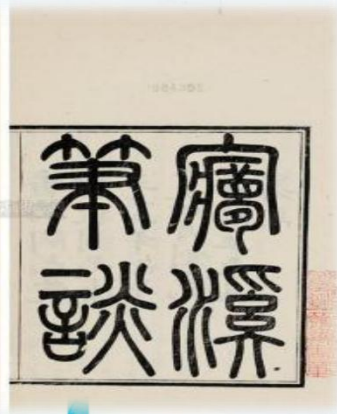 夢溪
筆談